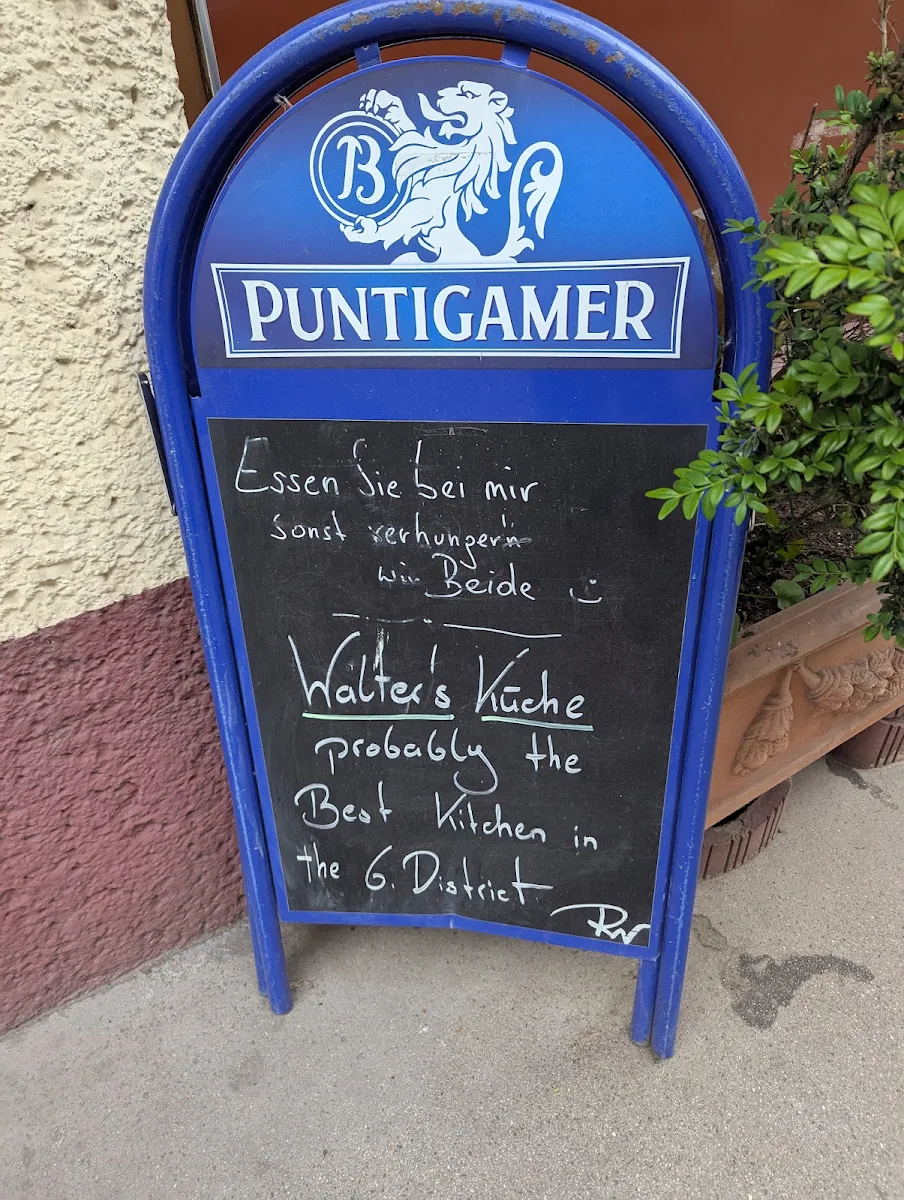 B
PUNTIGAMER
Essen Sie bei mir
sonst verhunger'n
wir Beide :)
Walter's Küche
probably the
Best Kitchen in
the 6. District
RW